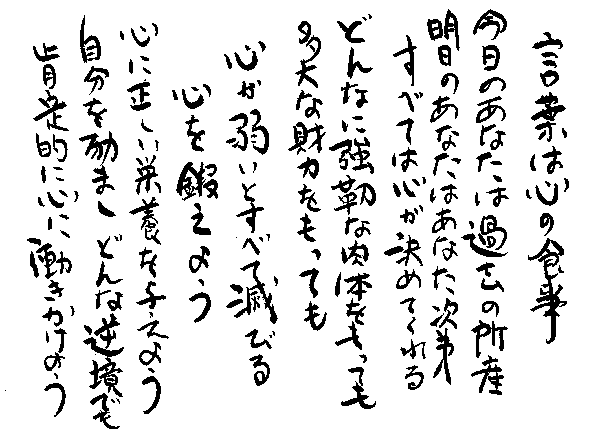 言葉は心の食事
今日のあなたは過去の所産
明日のあなたはあなた次第
すべては心が決めてくれる
どんなに強靭な肉体をもっても
多大な財力をもっても
心が弱いとすべて滅びる
心を鍛えよう
心に正しい栄養を与えよう
自分を励ましどんな逆境でも
肯定的に心に働きかけよう